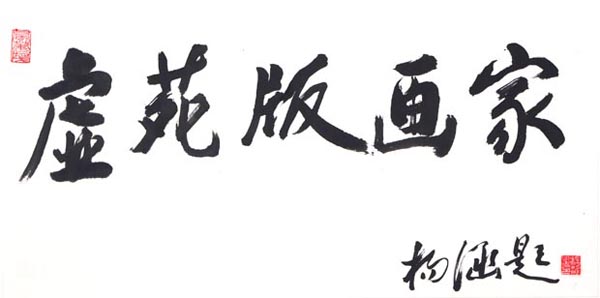 虚苑版画家
杨涵题